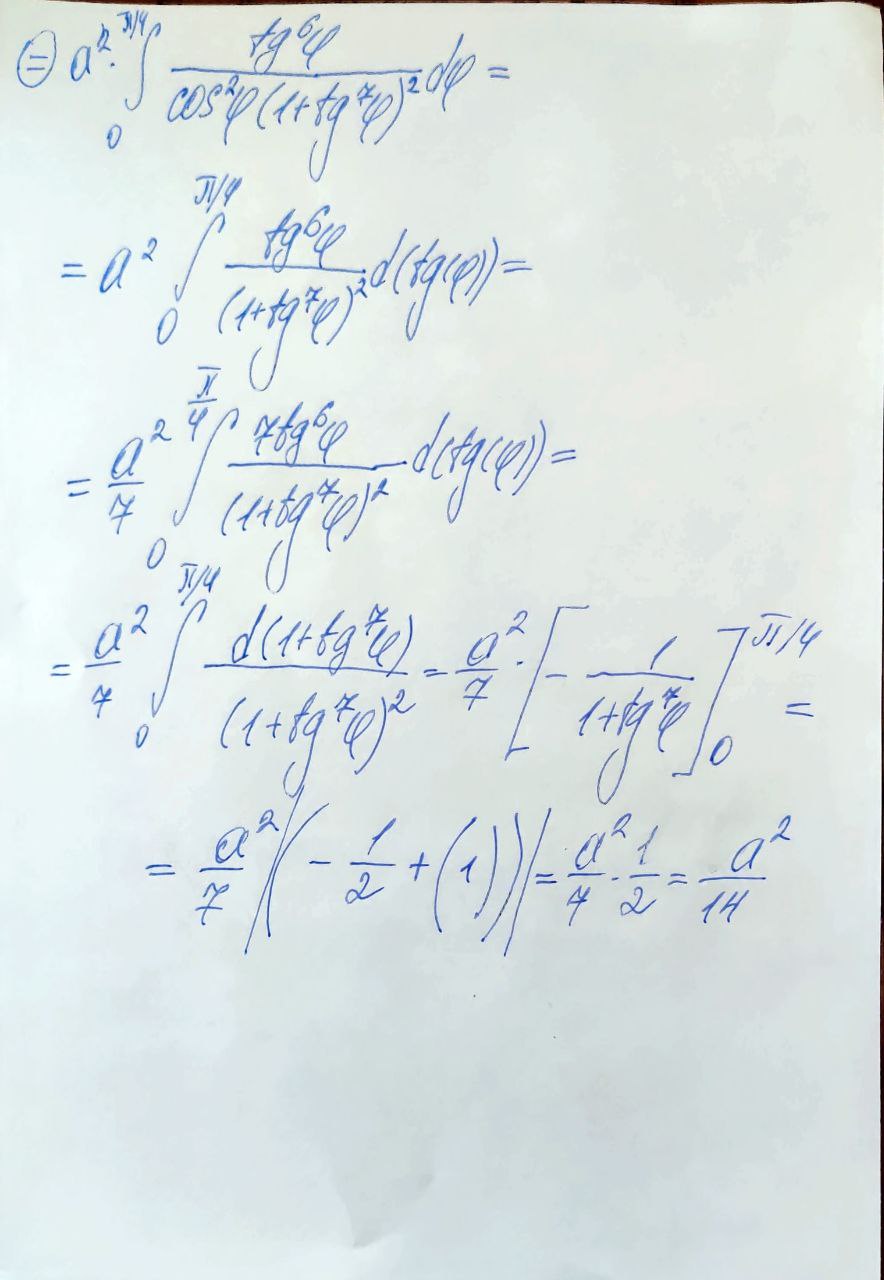 ⊜ a². ∫₀^{π/4} tg⁶φ / (cos²φ (1+tg⁷φ)²) dφ =
= a² ∫₀^{π/4} tg⁶φ / (1+tg⁷φ)² d(tg(φ)) =
= a²/7 ∫₀^{π/4} 7tg⁶φ / (1+tg⁷φ)² d(tg(φ)) =
= a²/7 ∫₀^{π/4} d(1+tg⁷φ) / (1+tg⁷φ)² = a²/7 · [- 1/(1+tg⁷φ)]₀^{π/4} =
= a²/7 |(- 1/2 + (1))| = a²/7 · 1/2 = a²/14